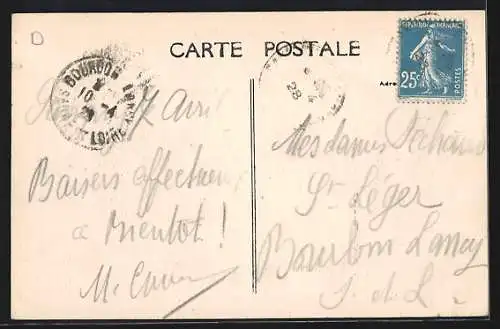 D
CARTE POSTALE
REPUBLIQUE FRANÇAISE
25c
POSTES
Adre
BOURBON LANCY
10 -4
LOIRE
4
28
7 Avril
Baisers affectueux
à Bientôt !
Mesdames
St Léger
Bourbon Lancy
S. et L.